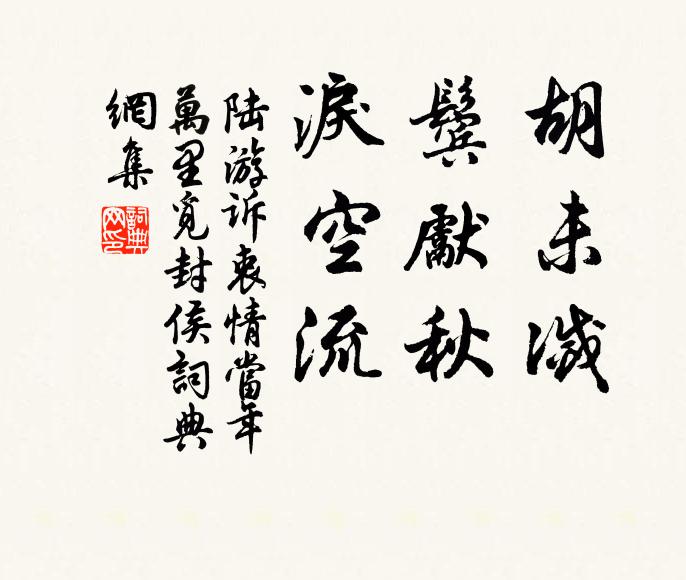 胡未滅
鬢獻秋
淚空流
陸游訴衷情當年
萬里覓封侯詞典
網集
詞典
网印